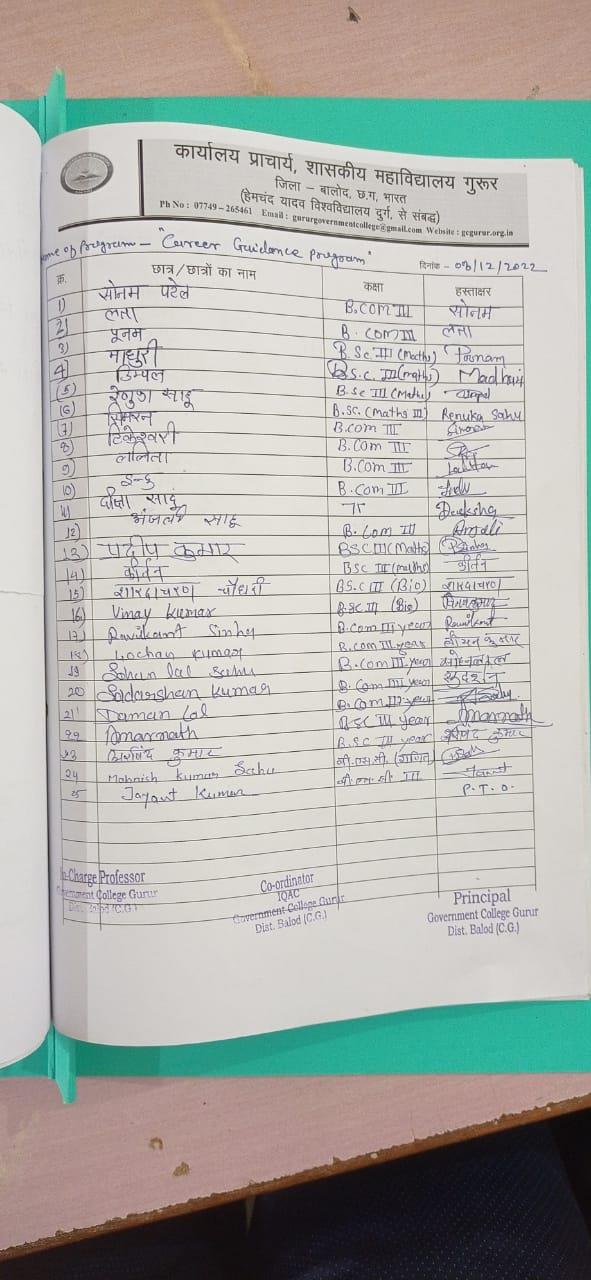 कार्यालय प्राचार्य, शासकीय महाविद्यालय गुरूर
जिला – बालोद, छ.ग, भारत
(हेमचंद यादव विश्वविद्यालय दुर्ग, से संबद्ध)
Ph No : 07749 - 265461 Email : gururgovernmentcollege@gmail.com Website : gcgurur.org.in
ame of Program - "Career Guidance program"
दिनांक - 03/12/2022
क्र. छात्र/छात्रों का नाम कक्षा हस्ताक्षर
1) सोनम पटेल B.COM III सोनम
2) लता B. COM III लता
3) पूनम B.Sc III (Maths) Poonam
4) माधुरी B.S.C. III (maths) Madhuri
(5) डिम्पल B.Sc III (Maths)
(6) रेणुका साहू B.Sc. (Maths III) Renuka Sahu
(7) सिमरन B.COM III Simran
8) टिकेश्वरी B.Com III
9) ललिता B.Com III
10) इन्दु B.Com III Indu
11) दीक्षा साहू Deeksha
12) अंजली साहू B.Com III Anjali
13) प्रदीप कुमार BSC III (Maths)
14) कीर्तन BSC III (maths) कीर्तन
15) शारदाचरण चौधरी BS.C III (Bio) शारदाचरण
16) Vinay Kumar B.SC III (Bio) विनय कुमार
17) Ravikant Sinha B.Com III year Ravikant
18) Lochan Kumar B.com III year लोचन कुमार
19 Sohan lal Sahu B.com III year सोहनलाल
20 Sudarshan Kumar B.Com III year सुदर्शन
21 Daman Lal B.COM III year
22 Amarnath B.SC III year Amarnath
23 अरविंद कुमार B.SC III year अरविंद कुमार
24 Mohnish Kumar Sahu बी.एस.सी. (गणित)
25 Jayant Kumar बी.एस.सी III Jayant
P.T.O.
In-Charge Professor
Government College Gurur
Dist. Balod (C.G.)
Co-ordinator
IQAC
Government College Gurur
Dist. Balod (C.G.)
Principal
Government College Gurur
Dist. Balod (C.G.)